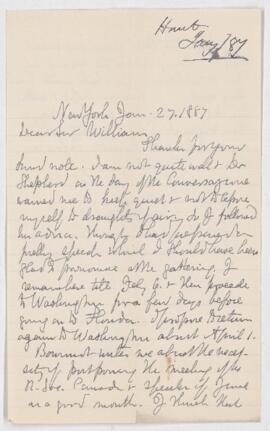 Hunt
Jany /87
New York Jan. 27. 1887
Dear Sir William
Thanks for your
kind note. I am not quite well & Dr
Shepherd on the day of the Conversazione
warned me to keep quiet & not to expose
myself to draughts of air, so I followed
his advice. Though I had prepared a
pretty speech which I should have been
glad to pronounce at the gathering. I
remain here till Feby 6. & then proceed
to Washington for a few days before
going on to Florida. I propose to return
again to Washington about April 1.
Bourinot writes me about the neces-
sity of postponing the meeting of the
R. Soc. Canada & speaks of June
as a good month. I think that